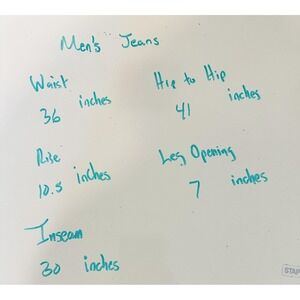 Men's Jeans
Waist
36 inches
Hip to Hip
41 inches
Rise
10.5 inches
Leg Opening
7 inches
Inseam
30 inches